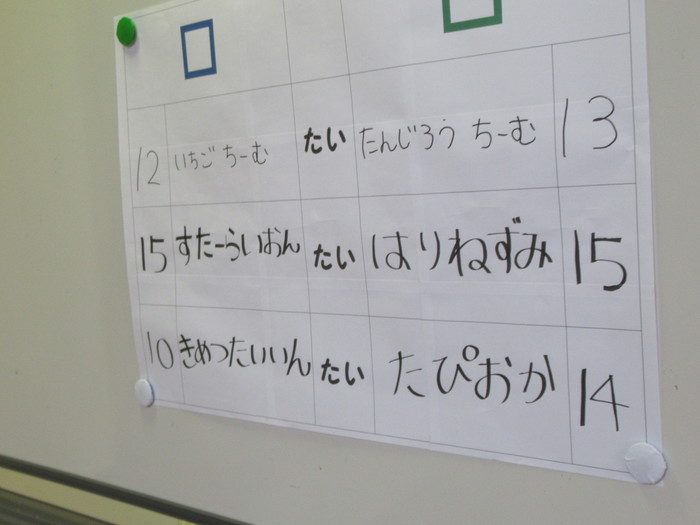 12 いちご ちーむ たい たんじろう ちーむ 13
15 すたーらいおん たい はりねずみ 15
10 きめつたいいん たい たぴおか 14